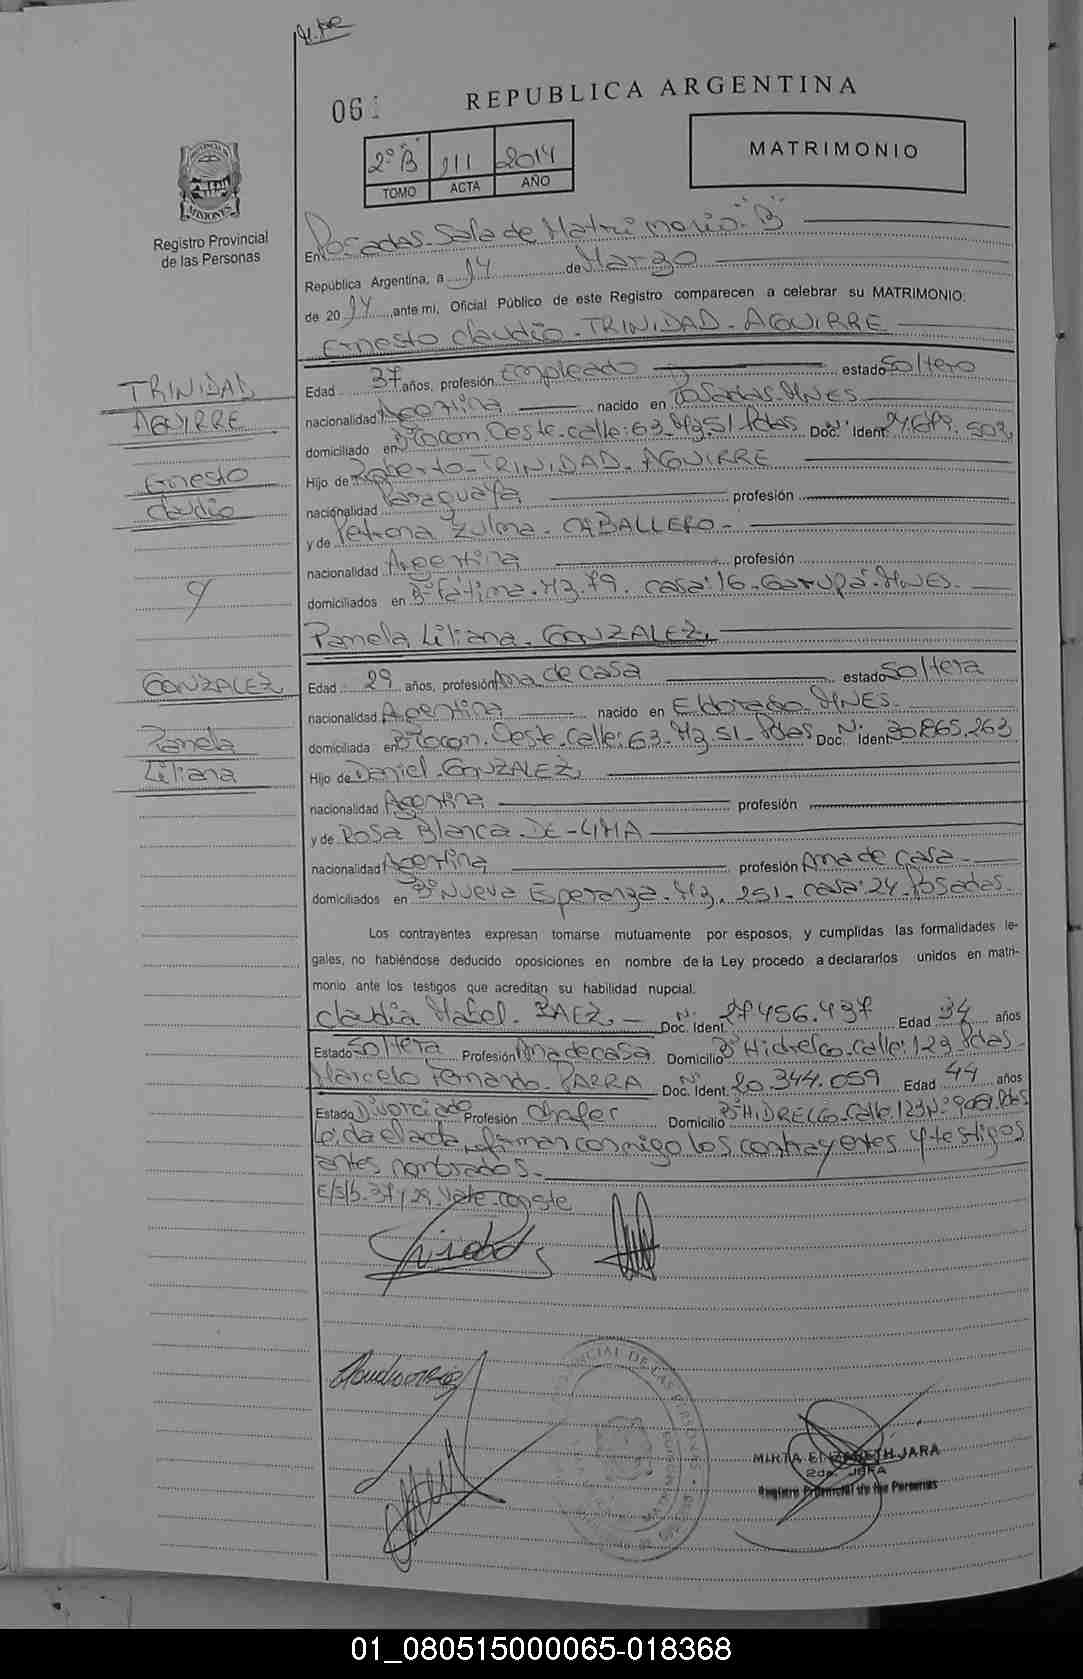 061
REPUBLICA ARGENTINA
2º "B" 111 2014
TOMO ACTA AÑO
MATRIMONIO
MISIONES
Registro Provincial
de las Personas
En Posadas. Sala de Matrimonio "B"
República Argentina, a 14 de Marzo
de 2014, ante mi, Oficial Público de este Registro comparecen a celebrar su MATRIMONIO:
Ernesto Claudio. TRINIDAD. AGUIRRE
TRINIDAD
AGUIRRE
Ernesto
Claudio
y
GONZALEZ
Pamela
Liliana
Edad 37 años, profesión Empleado estado Soltero
nacionalidad Argentina nacido en Posadas. MNES
domiciliado en Bº Ocon. Oeste. calle: 63. Mz. 51. Pdas Doc. Nº Ident 24.679.502
Hijo de Roberto. TRINIDAD. AGUIRRE
nacionalidad Paraguaya profesión
y de Petrona Zulma. CABALLERO.
nacionalidad Argentina profesión
domiciliados en Bº Fátima. Mz. 79. casa: 16. Garupá. MNES.
Pamela Liliana. GONZALEZ.
Edad 29 años, profesión Ama de casa estado Soltera
nacionalidad Argentina nacido en Eldorado. MNES
domiciliada en Bº Ocon. Oeste. Calle: 63. Mz 51. Pdas Doc. Nº Ident 30.865.263
Hijo de Daniel. GONZALEZ.
nacionalidad Argentina profesión
y de Rosa Blanca. DE-LIMA
nacionalidad Argentina profesión Ama de Casa
domiciliados en Bº Nueva Esperanza. Mz. 251. casa: 24. Posadas.
Los contrayentes expresan tomarse mutuamente por esposos, y cumplidas las formalidades le-
gales, no habiéndose deducido oposiciones en nombre de la Ley procedo a declararlos unidos en matri-
monio ante los testigos que acreditan su habilidad nupcial.
Claudia Mabel. BAEZ. Doc. Nº Ident. 27.456.437 Edad 34 años
Estado Soltera Profesión Ama de casa Domicilio Bº Hidrelco. Calle: 123 Pdas.
Marcelo Fernando. PARRA Doc. Nº Ident. 20.344.059 Edad 44 años
Estado Divorciado Profesión Chofer Domicilio Bº HIDRELCO. Calle. 123 Nº 9061. Pdas
Leída el acta, firman conmigo los contrayentes y testigos
antes nombrados.
E/S/b. 37/29. Vale. conste
MIRTA ELIZABETH JARA
2da. JEFA
Registro Provincial de las Personas
01_080515000065-018368